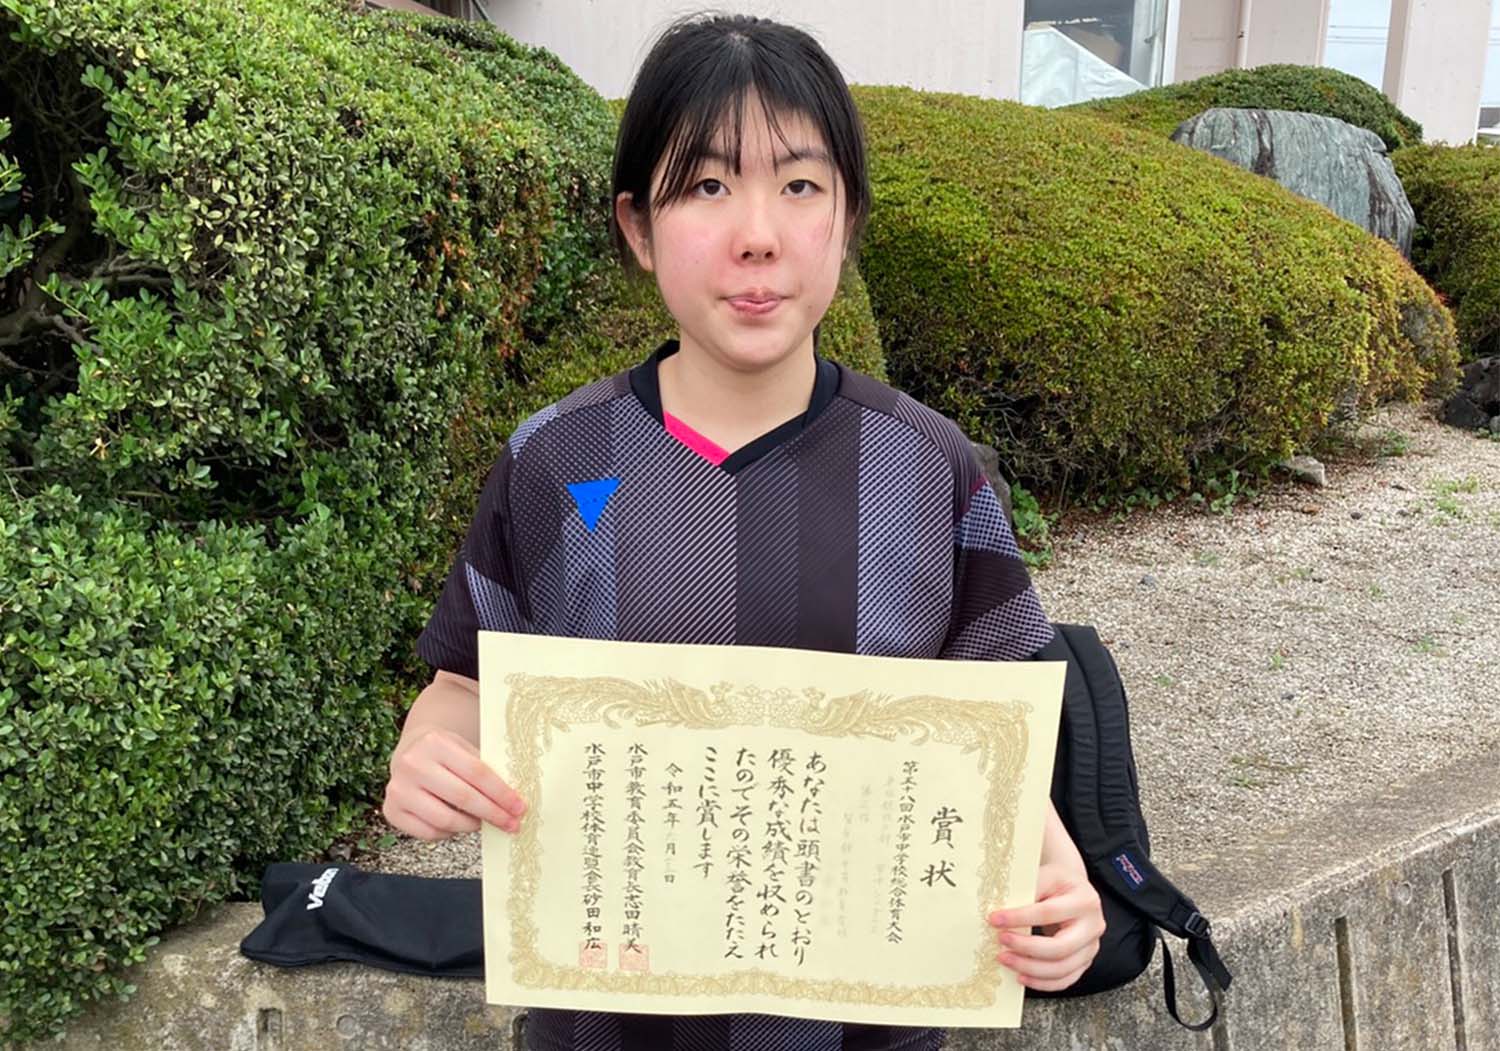 賞状
第五十八回水戸市中学校総合体育大会
あなたは頭書のとおり
優秀な成績を収められ
たのでその栄誉をたたえ
ここに賞します
令和五年 月 日
水戸市教育委員会教育長志田晴美
水戸市中学校体育連盟会長砂田和広
JANSPORT